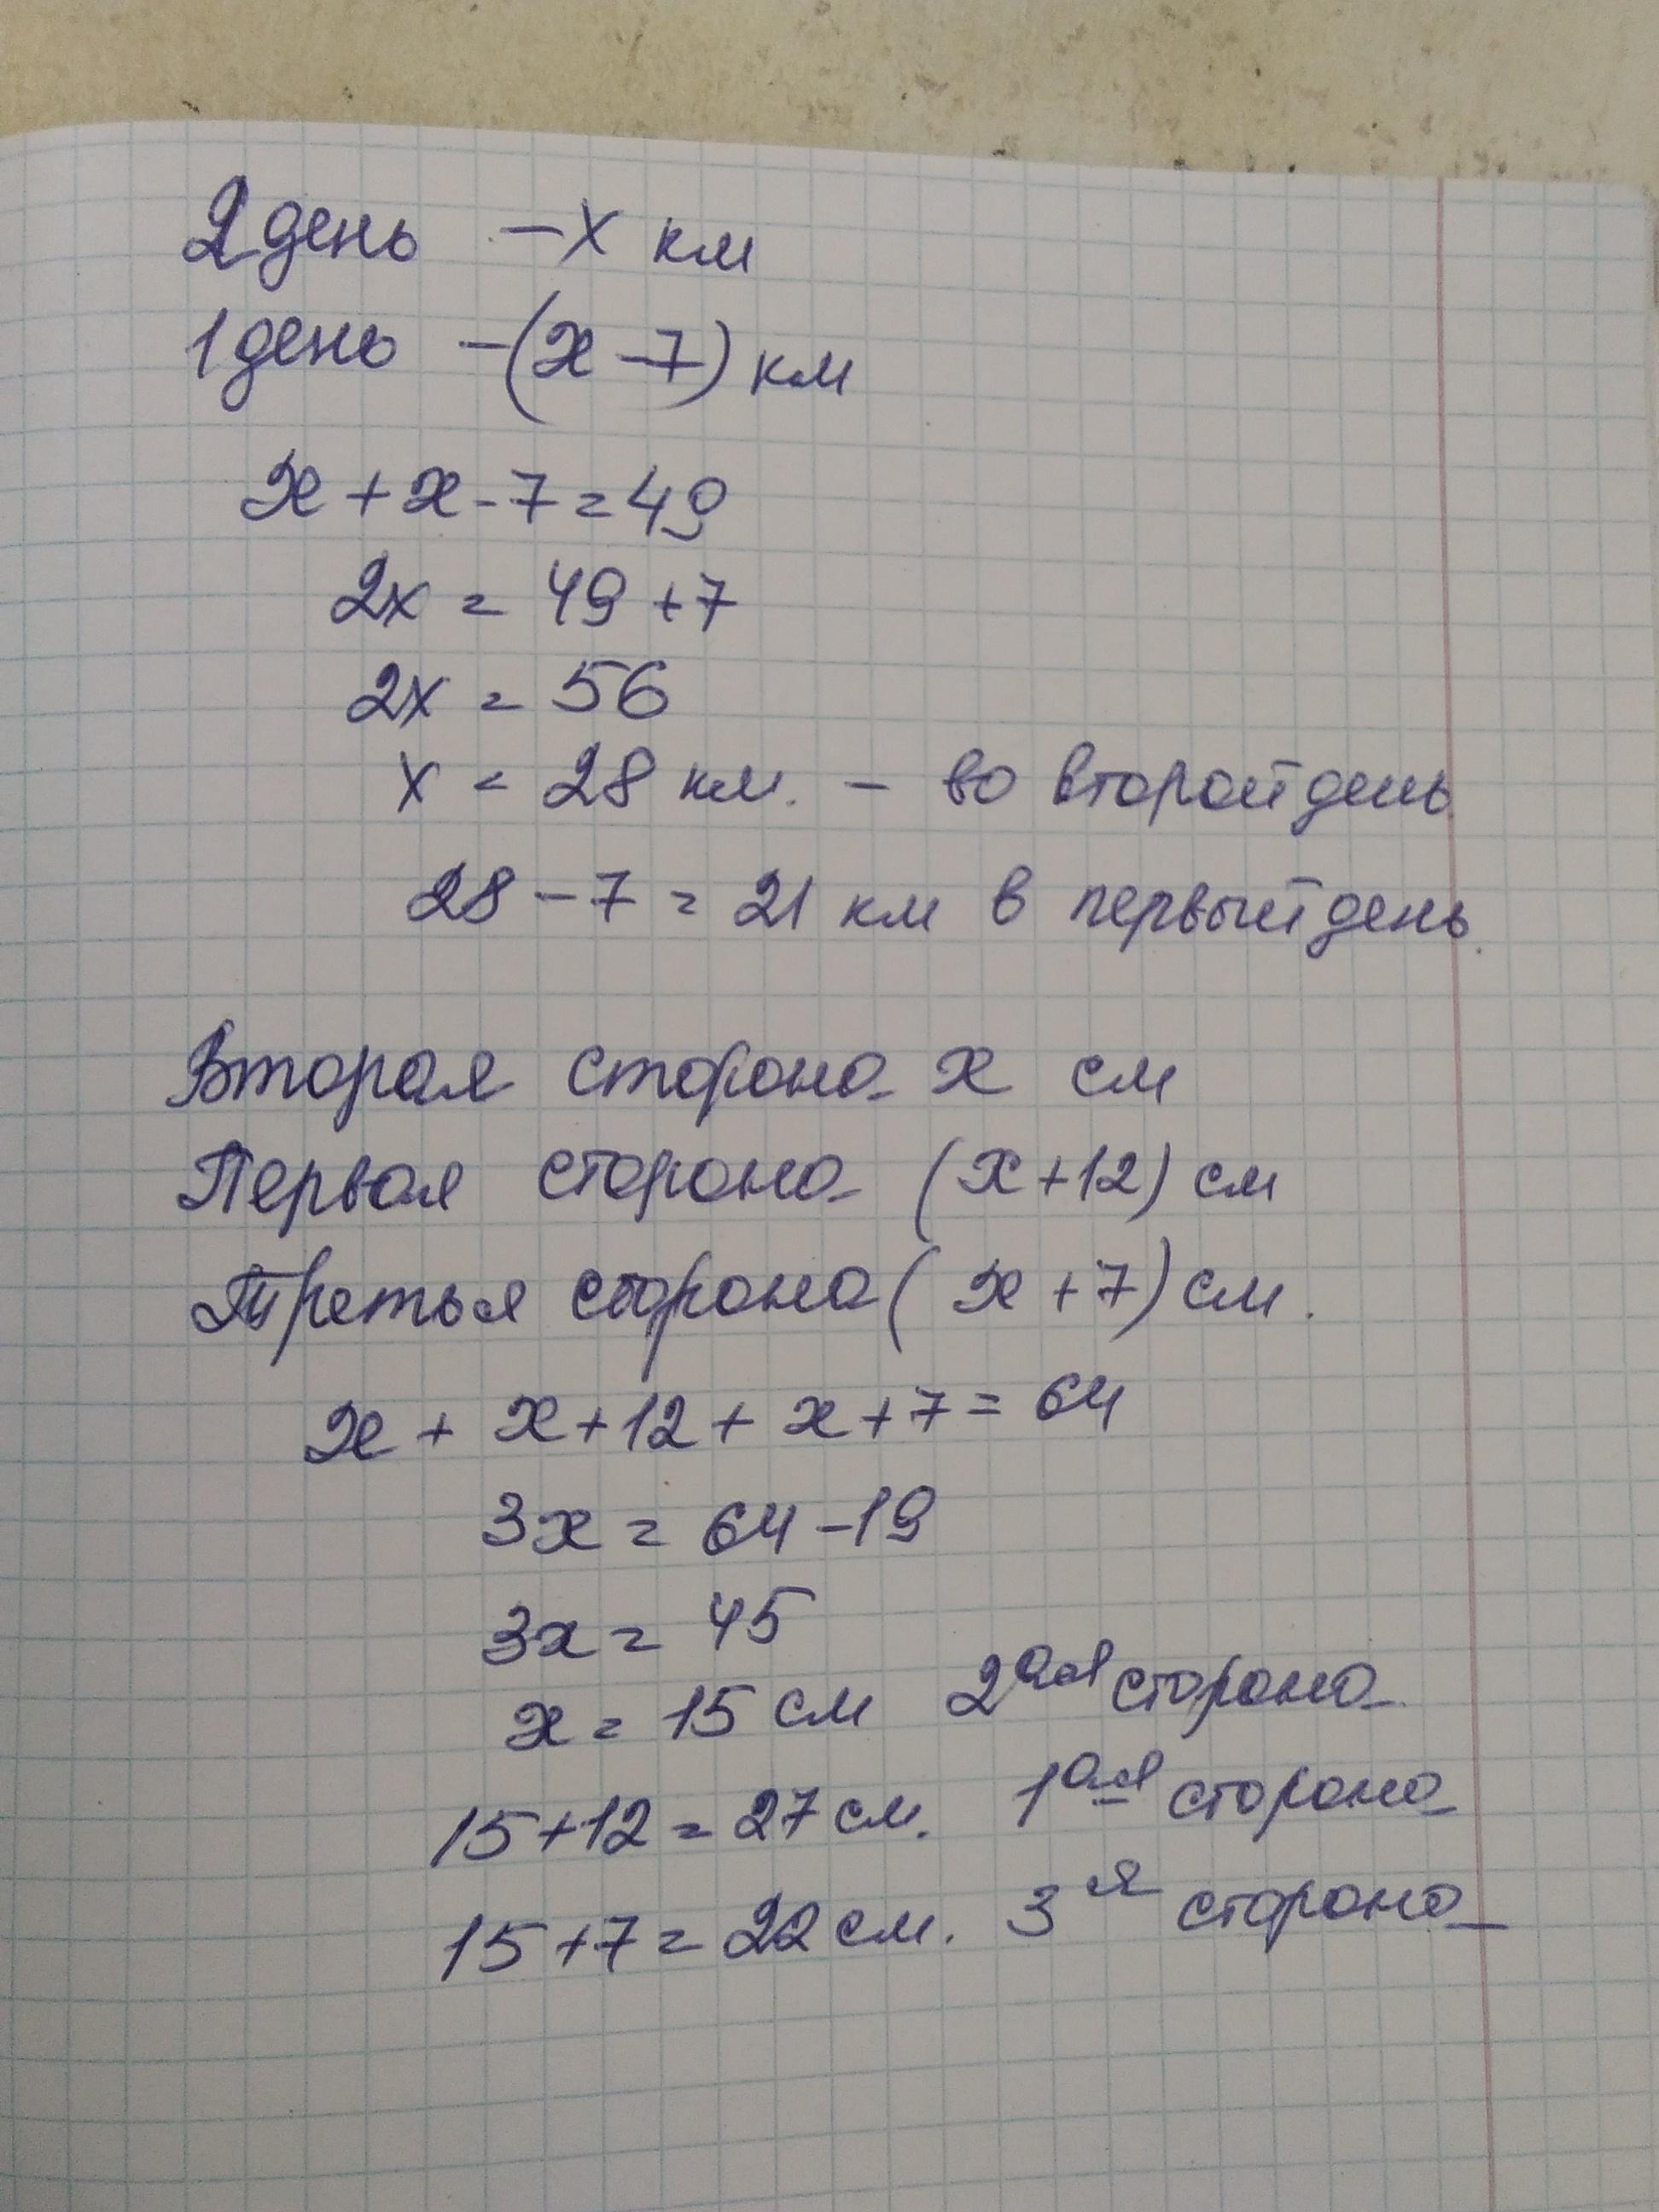 2 день - х км
1 день - (х - 7) км
х + х - 7 = 49
2х = 49 + 7
2х = 56
х = 28 км. - во второй день.
28 - 7 = 21 км в первый день.
Вторая сторона х см
Первая сторона (х + 12) см
Третья сторона (х + 7) см.
х + х + 12 + х + 7 = 64
3х = 64 - 19
3х = 45
х = 15 см 2ая сторона
15 + 12 = 27 см. 1ая сторона
15 + 7 = 22 см. 3я сторона